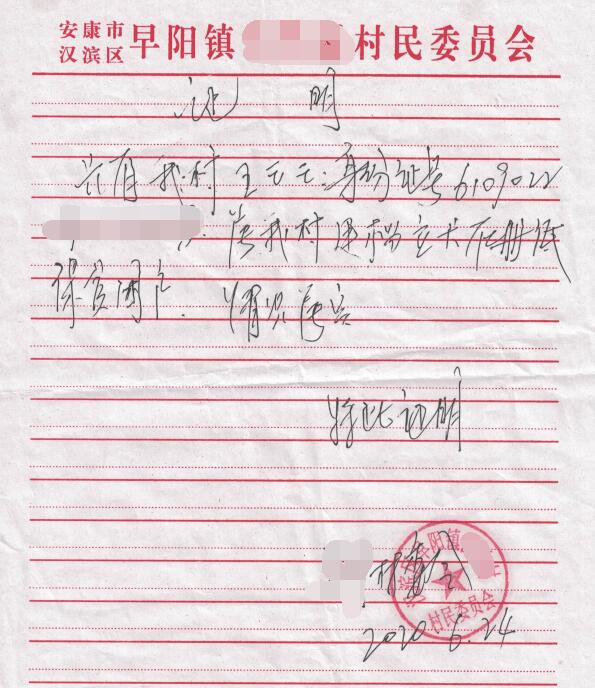 安康市
汉滨区 早阳镇 村民委员会
证 明
兹有我村王云云,身份证号6109022
系我村建档立卡在册低
保贫困户. 情况属实
特此证明
村委会
2020.6.24
汉滨区早阳镇
村民委员会